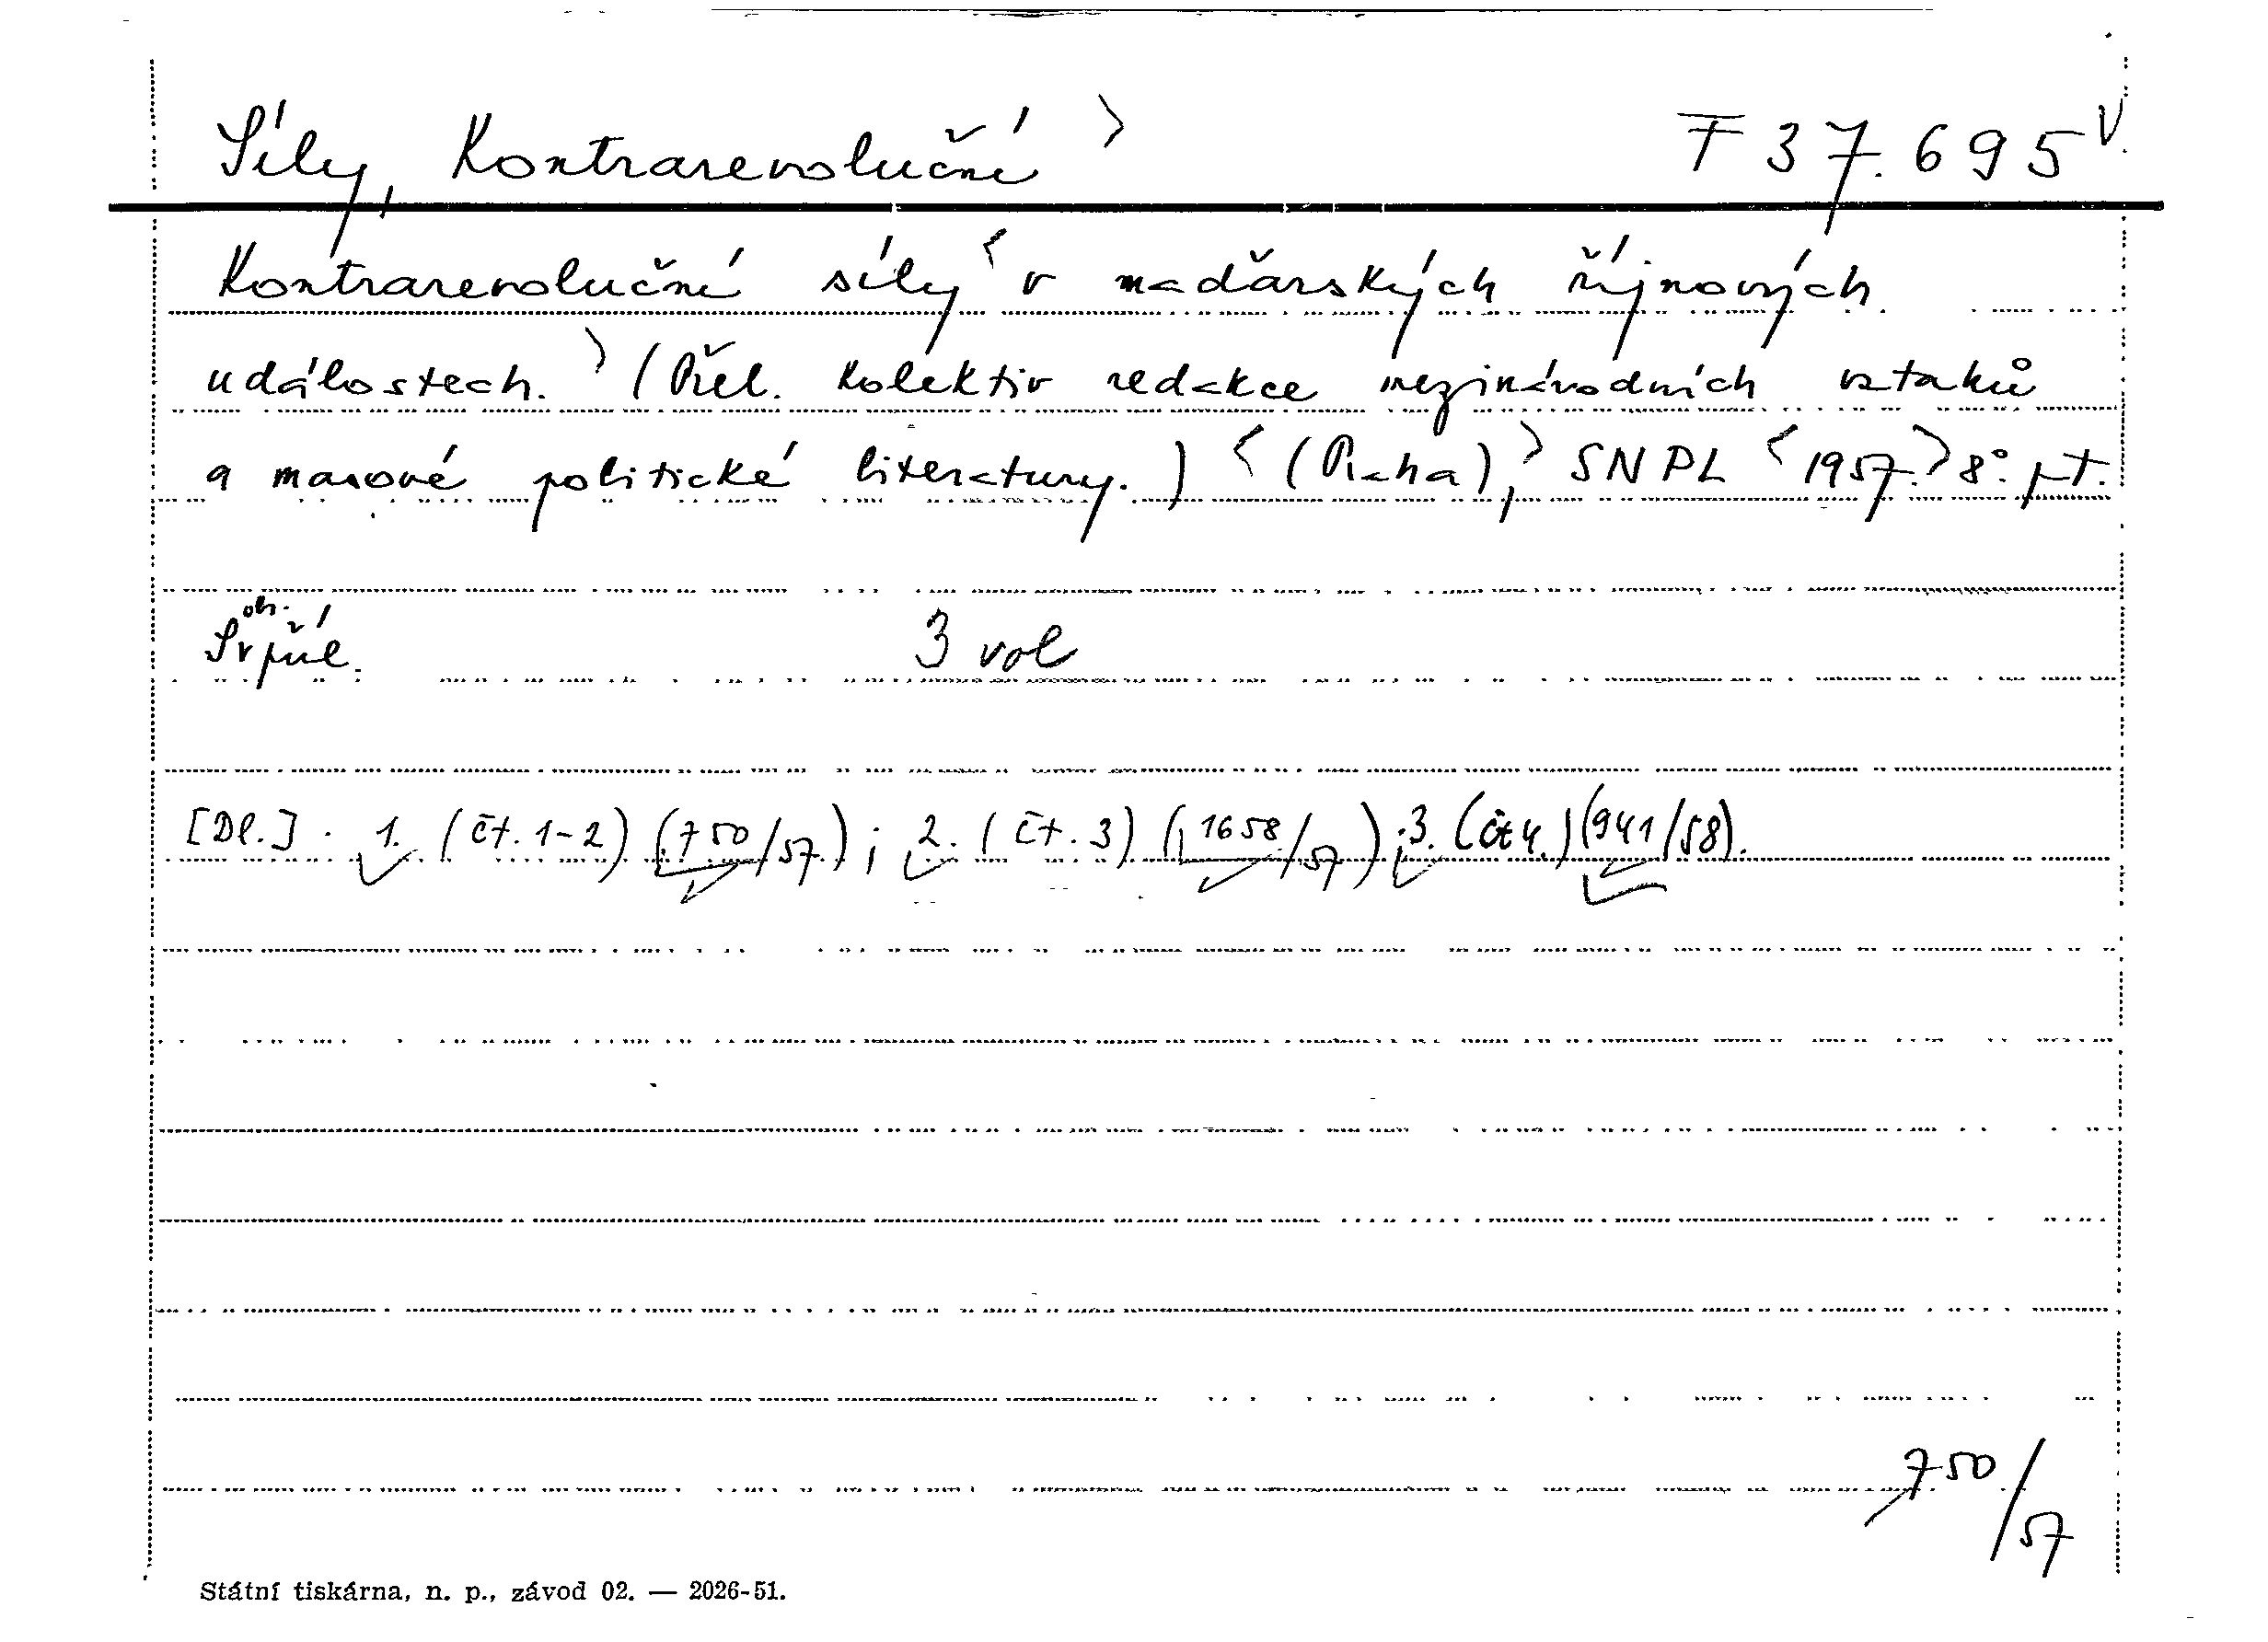 Síly, Kontrarevoluční > F 37.695 V.
Kontrarevoluční síly < v maďarských říjnových
událostech. > (Přel. kolektiv redakce mezinárodních vztahů
a masové politické literatury.) < (Praha), > SNPL < 1957. > 8°. pt.
obr.
S v příl. 3 vol
[Dl.] . 1. (čt. 1-2) (750/57.) ; 2. (čt. 3) (1658/57) ; 3. (čt 4.) (941/58).
750/57
Státní tiskárna, n. p., závod 02. — 2026-51.